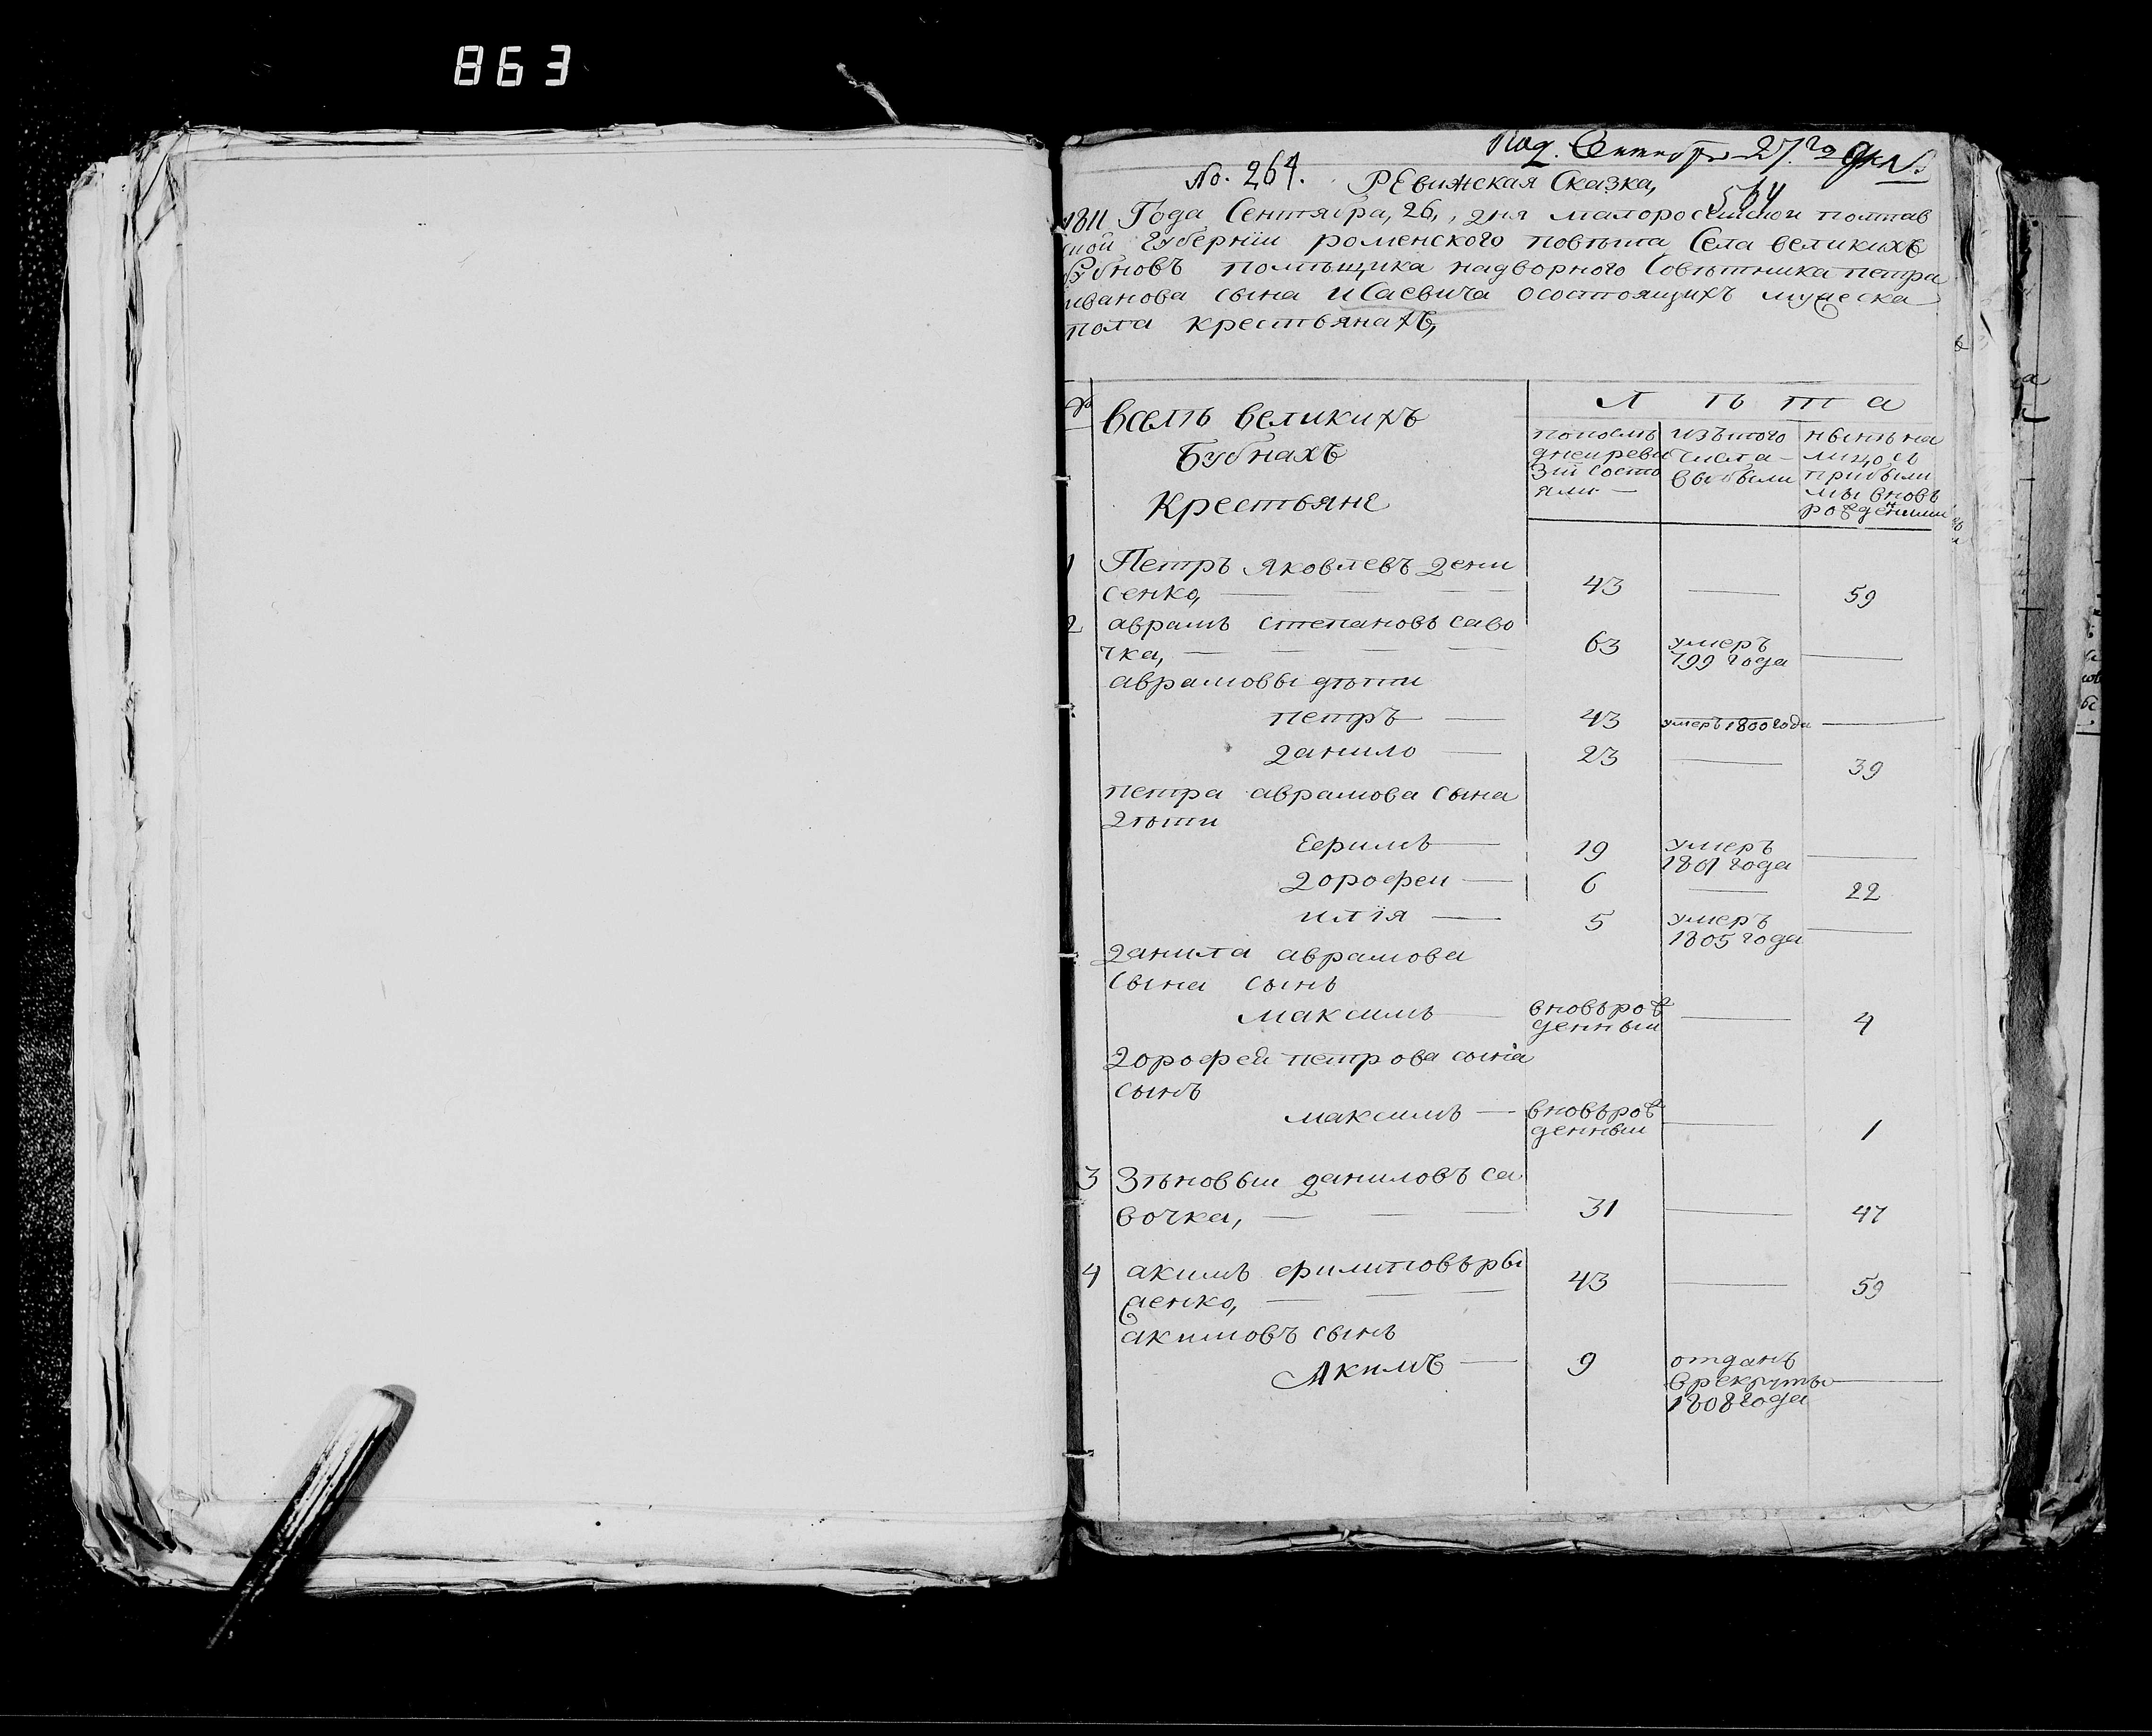 863
Под. Сентября 27го дня
No. 264. РЕвижская Сказка,
564
1811 Года Сентября, 26, дня малоросейской полтав
ской Губернїи роменского повѣта Села великихъ
Бубновъ помѣщика надворного Совѣтника петра
иванова сына иСаевича осостоящихъ мужеска
пола крестьянахъ,
№
вселѣ великихъ
Бубнахъ
крестьяне
Л ѣ т а
попослѣ
днеи реви
зїи состо
яли
изътого
числа
выбыли
нынѣ на
лицо съ
прибыли
мы вновь
рожденными
1 Петръ яковлевъ дени
сенко, 43 — 59
2 аврамъ степановъ саво
чка, 63 умеръ
799 года —
аврамовы дѣти
петръ — 43 умеръ 1800 года —
данило — 23 — 39
петра аврамова сына
дѣти
Ефимъ — 19 умеръ
1801 года —
дорофеи — 6 — 22
илїя — 5 умеръ
1805 года —
данила аврамова
сына сынъ
максимъ — вновьрож
денныи — 4
дорофей петрова сына
сынъ
максимъ — вновьрож
денныи — 1
3 Зѣновыи даниловъ са
вочка, 31 — 47
4 акимъ филиповъ ры
женко, 43 — 59
акимовъ сынъ
Акимъ — 9 отданъ
врекруты
1808 года —